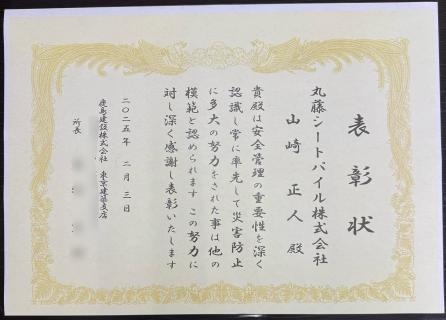 表彰状
丸藤シートパイル株式会社
山崎 正人 殿
貴殿は安全管理の重要性を深く
認識し常に率先して災害防止
に多大の努力をされた事は他の
模範と認められます この努力に
対し深く感謝し表彰いたします
二〇二五年 二月 三日
鹿島建設株式会社 東京建築支店
所長